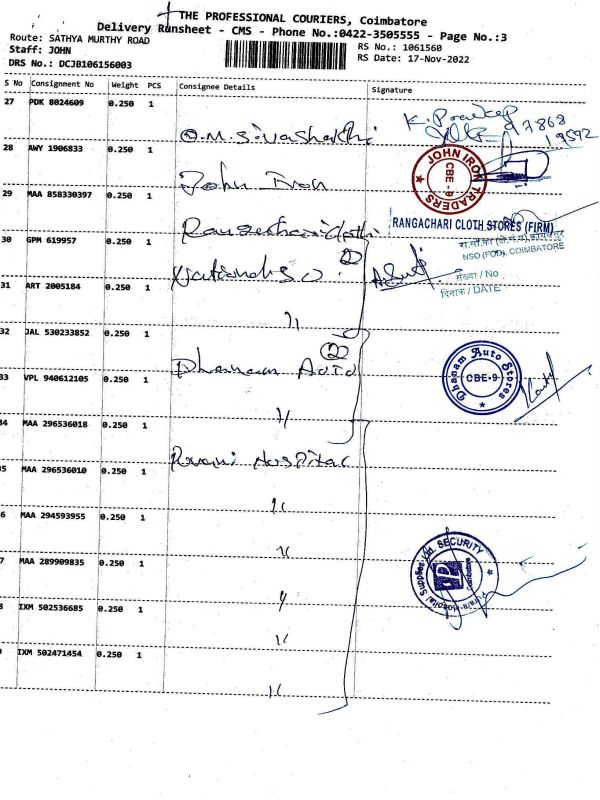 THE PROFESSIONAL COURIERS, Coimbatore
Delivery Runsheet - CMS - Phone No.:0422-3505555 - Page No.:3
Route: SATHYA MURTHY ROAD
RS No.: 1061560
Staff: JOHN
RS Date: 17-Nov-2022
DRS No.: DCJB106156003
S No Consignment No Weight PCS Consignee Details Signature
27 PDK 8024609 0.250 1
K. Pradeep
97868
19592
28 AWY 1906833 0.250 1
JOHN IRON TRADERS
CBE - 9
John Iron
29 MAA 858330397 0.250 1
RANGACHARI CLOTH STORES (FIRM)
30 GPM 619957 0.250 1
NSO (FOD), COIMBATORE
संख्या / No
दिनांक / DATE
31 ART 2005184 0.250 1
"
32 JAL 530233852 0.250 1
Dhanam Auto (2)
Dhanam Auto Stores
CBE-9
33 VPL 940612105 0.250 1
"
34 MAA 296536018 0.250 1
Hospital
5 MAA 296536010 0.250 1
"
6 MAA 294593955 0.250 1
"
SECURITY
7 MAA 289909835 0.250 1
"
8 IXM 502536685 0.250 1
"
9 IXM 502471454 0.250 1
"